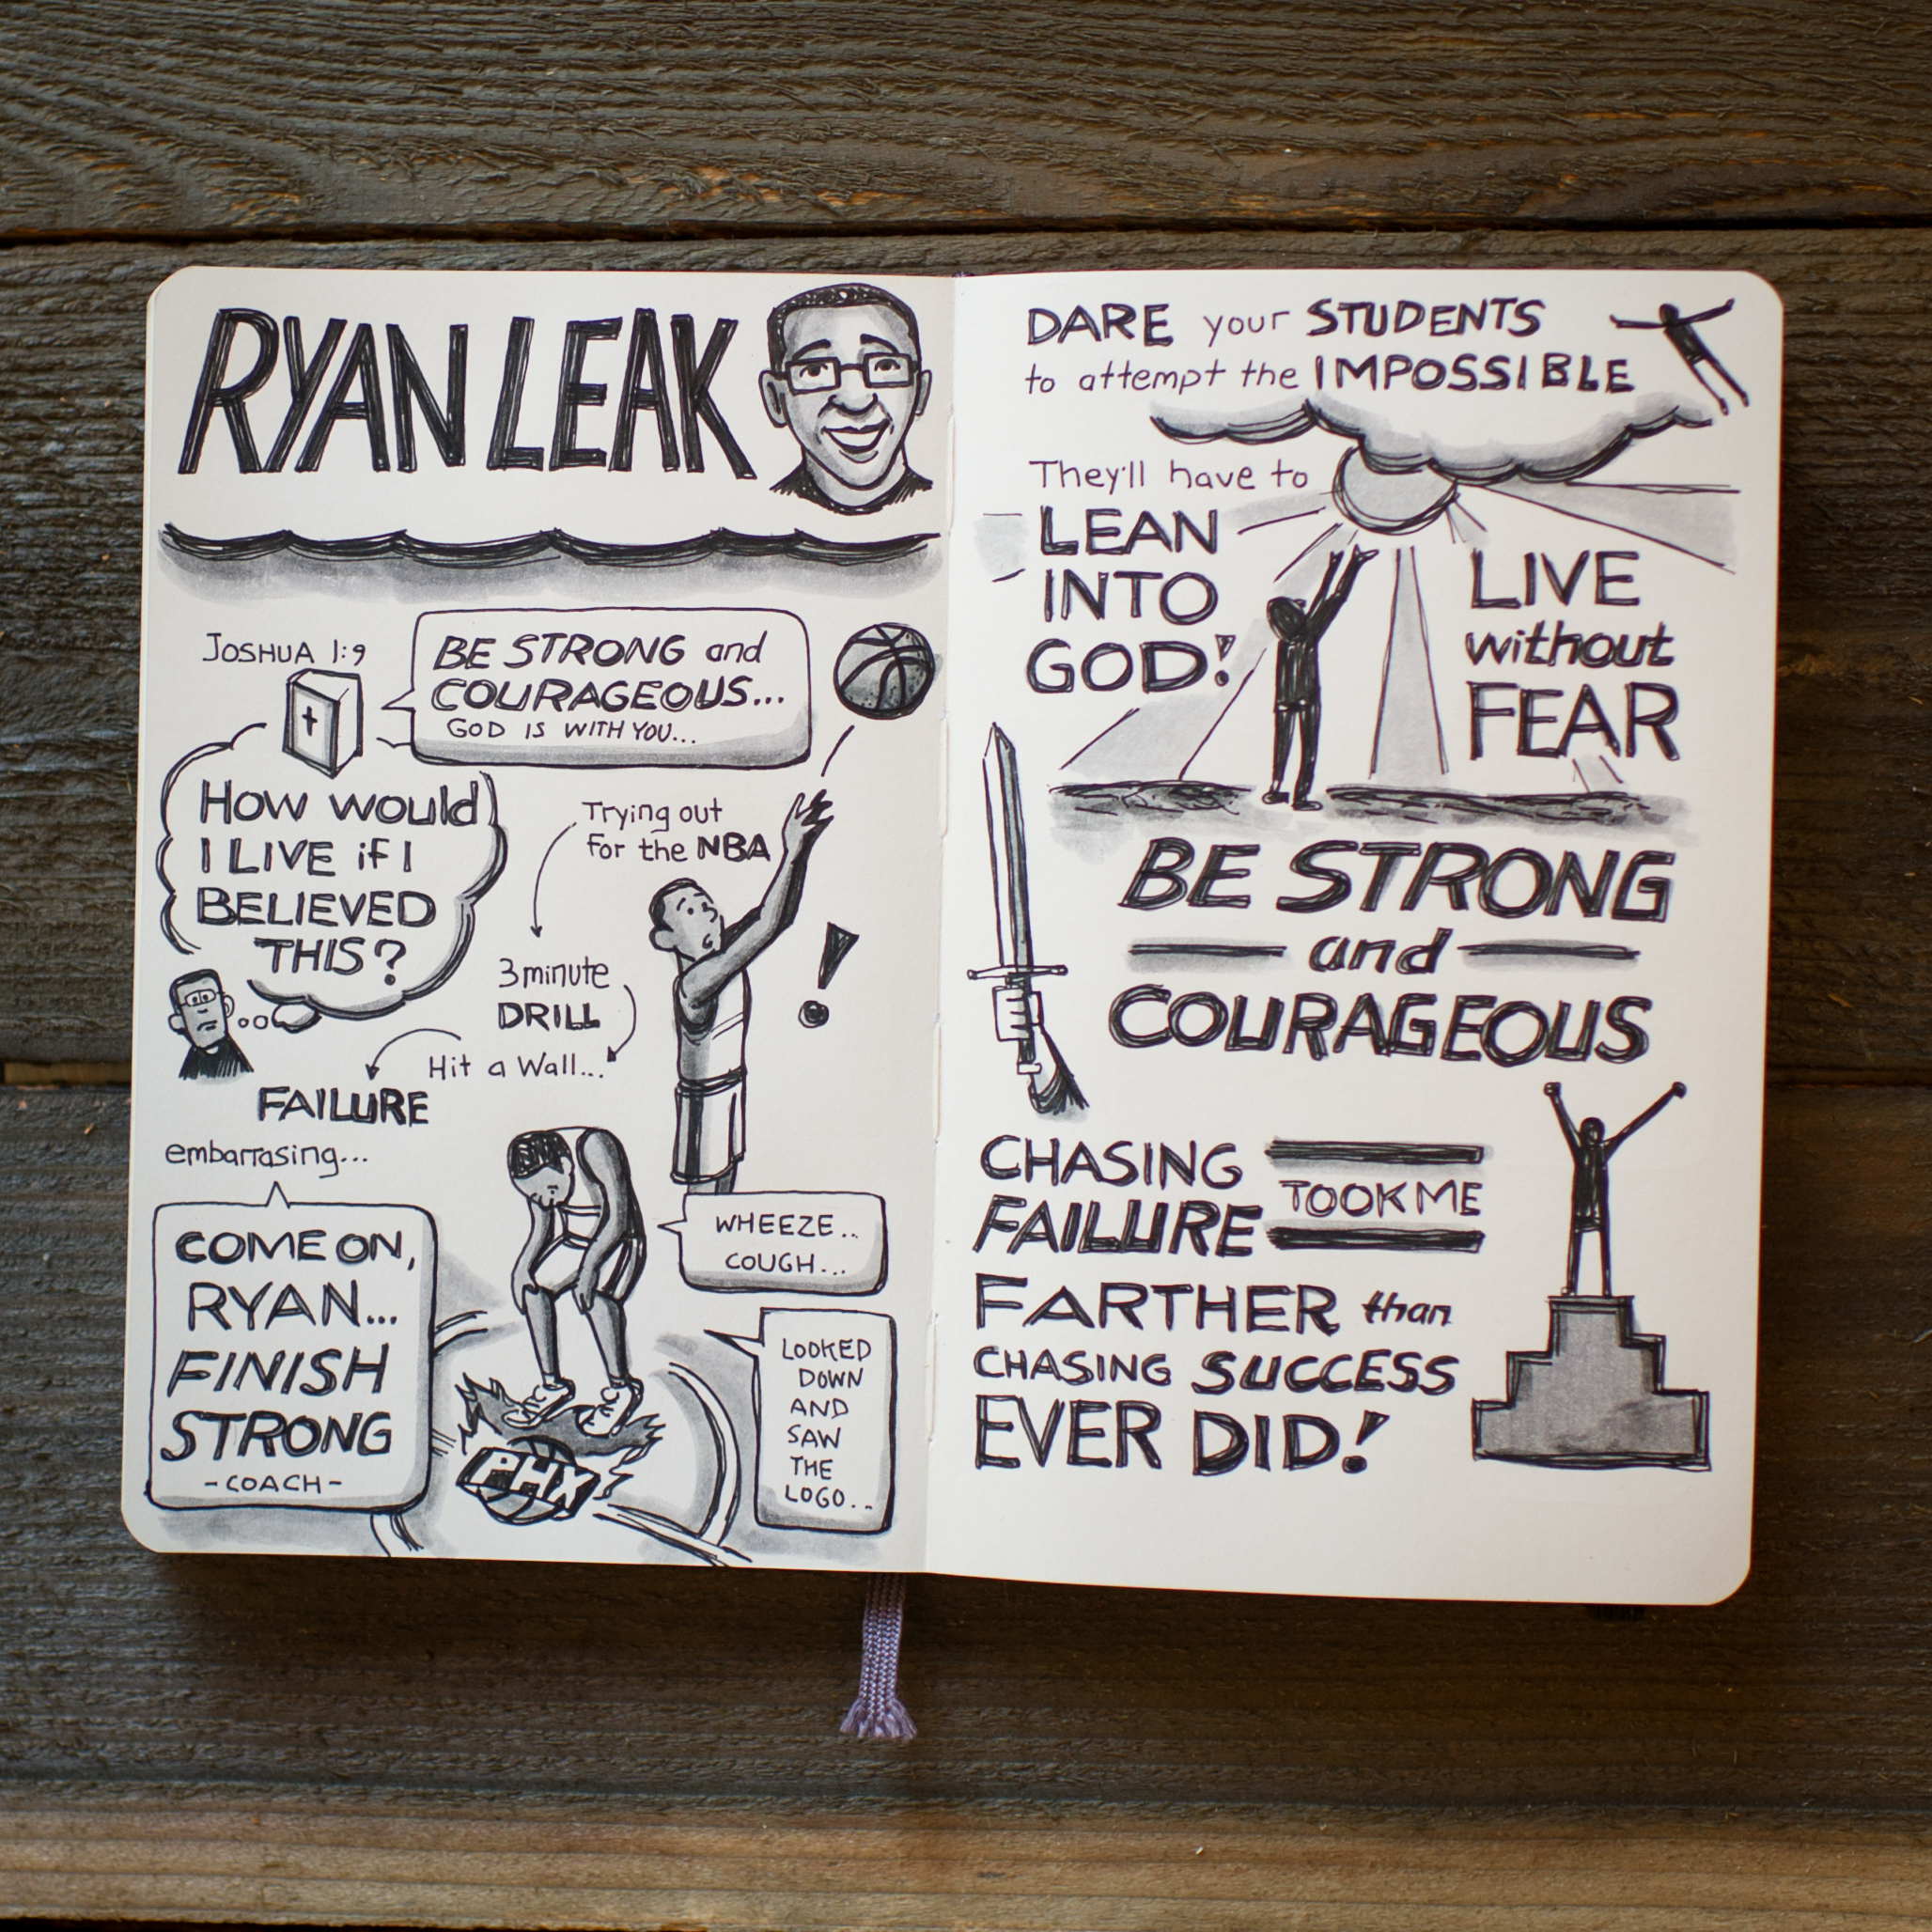 RYAN LEAK
JOSHUA 1:9
BE STRONG and
COURAGEOUS...
GOD IS WITH YOU...
HOW WOULD
I LIVE if I
BELIEVED
THIS?
Trying out
for the NBA
3 minute
DRILL
Hit a Wall...
FAILURE
embarrasing...
COME ON,
RYAN...
FINISH
STRONG
-COACH-
WHEEZE..
COUGH...
LOOKED
DOWN
AND
SAW
THE
LOGO...
PHX
DARE your STUDENTS
to attempt the IMPOSSIBLE
They'll have to
LEAN
INTO
GOD!
LIVE
without
FEAR
BE STRONG
and
COURAGEOUS
CHASING
FAILURE
TOOK ME
FARTHER than
CHASING SUCCESS
EVER DID!